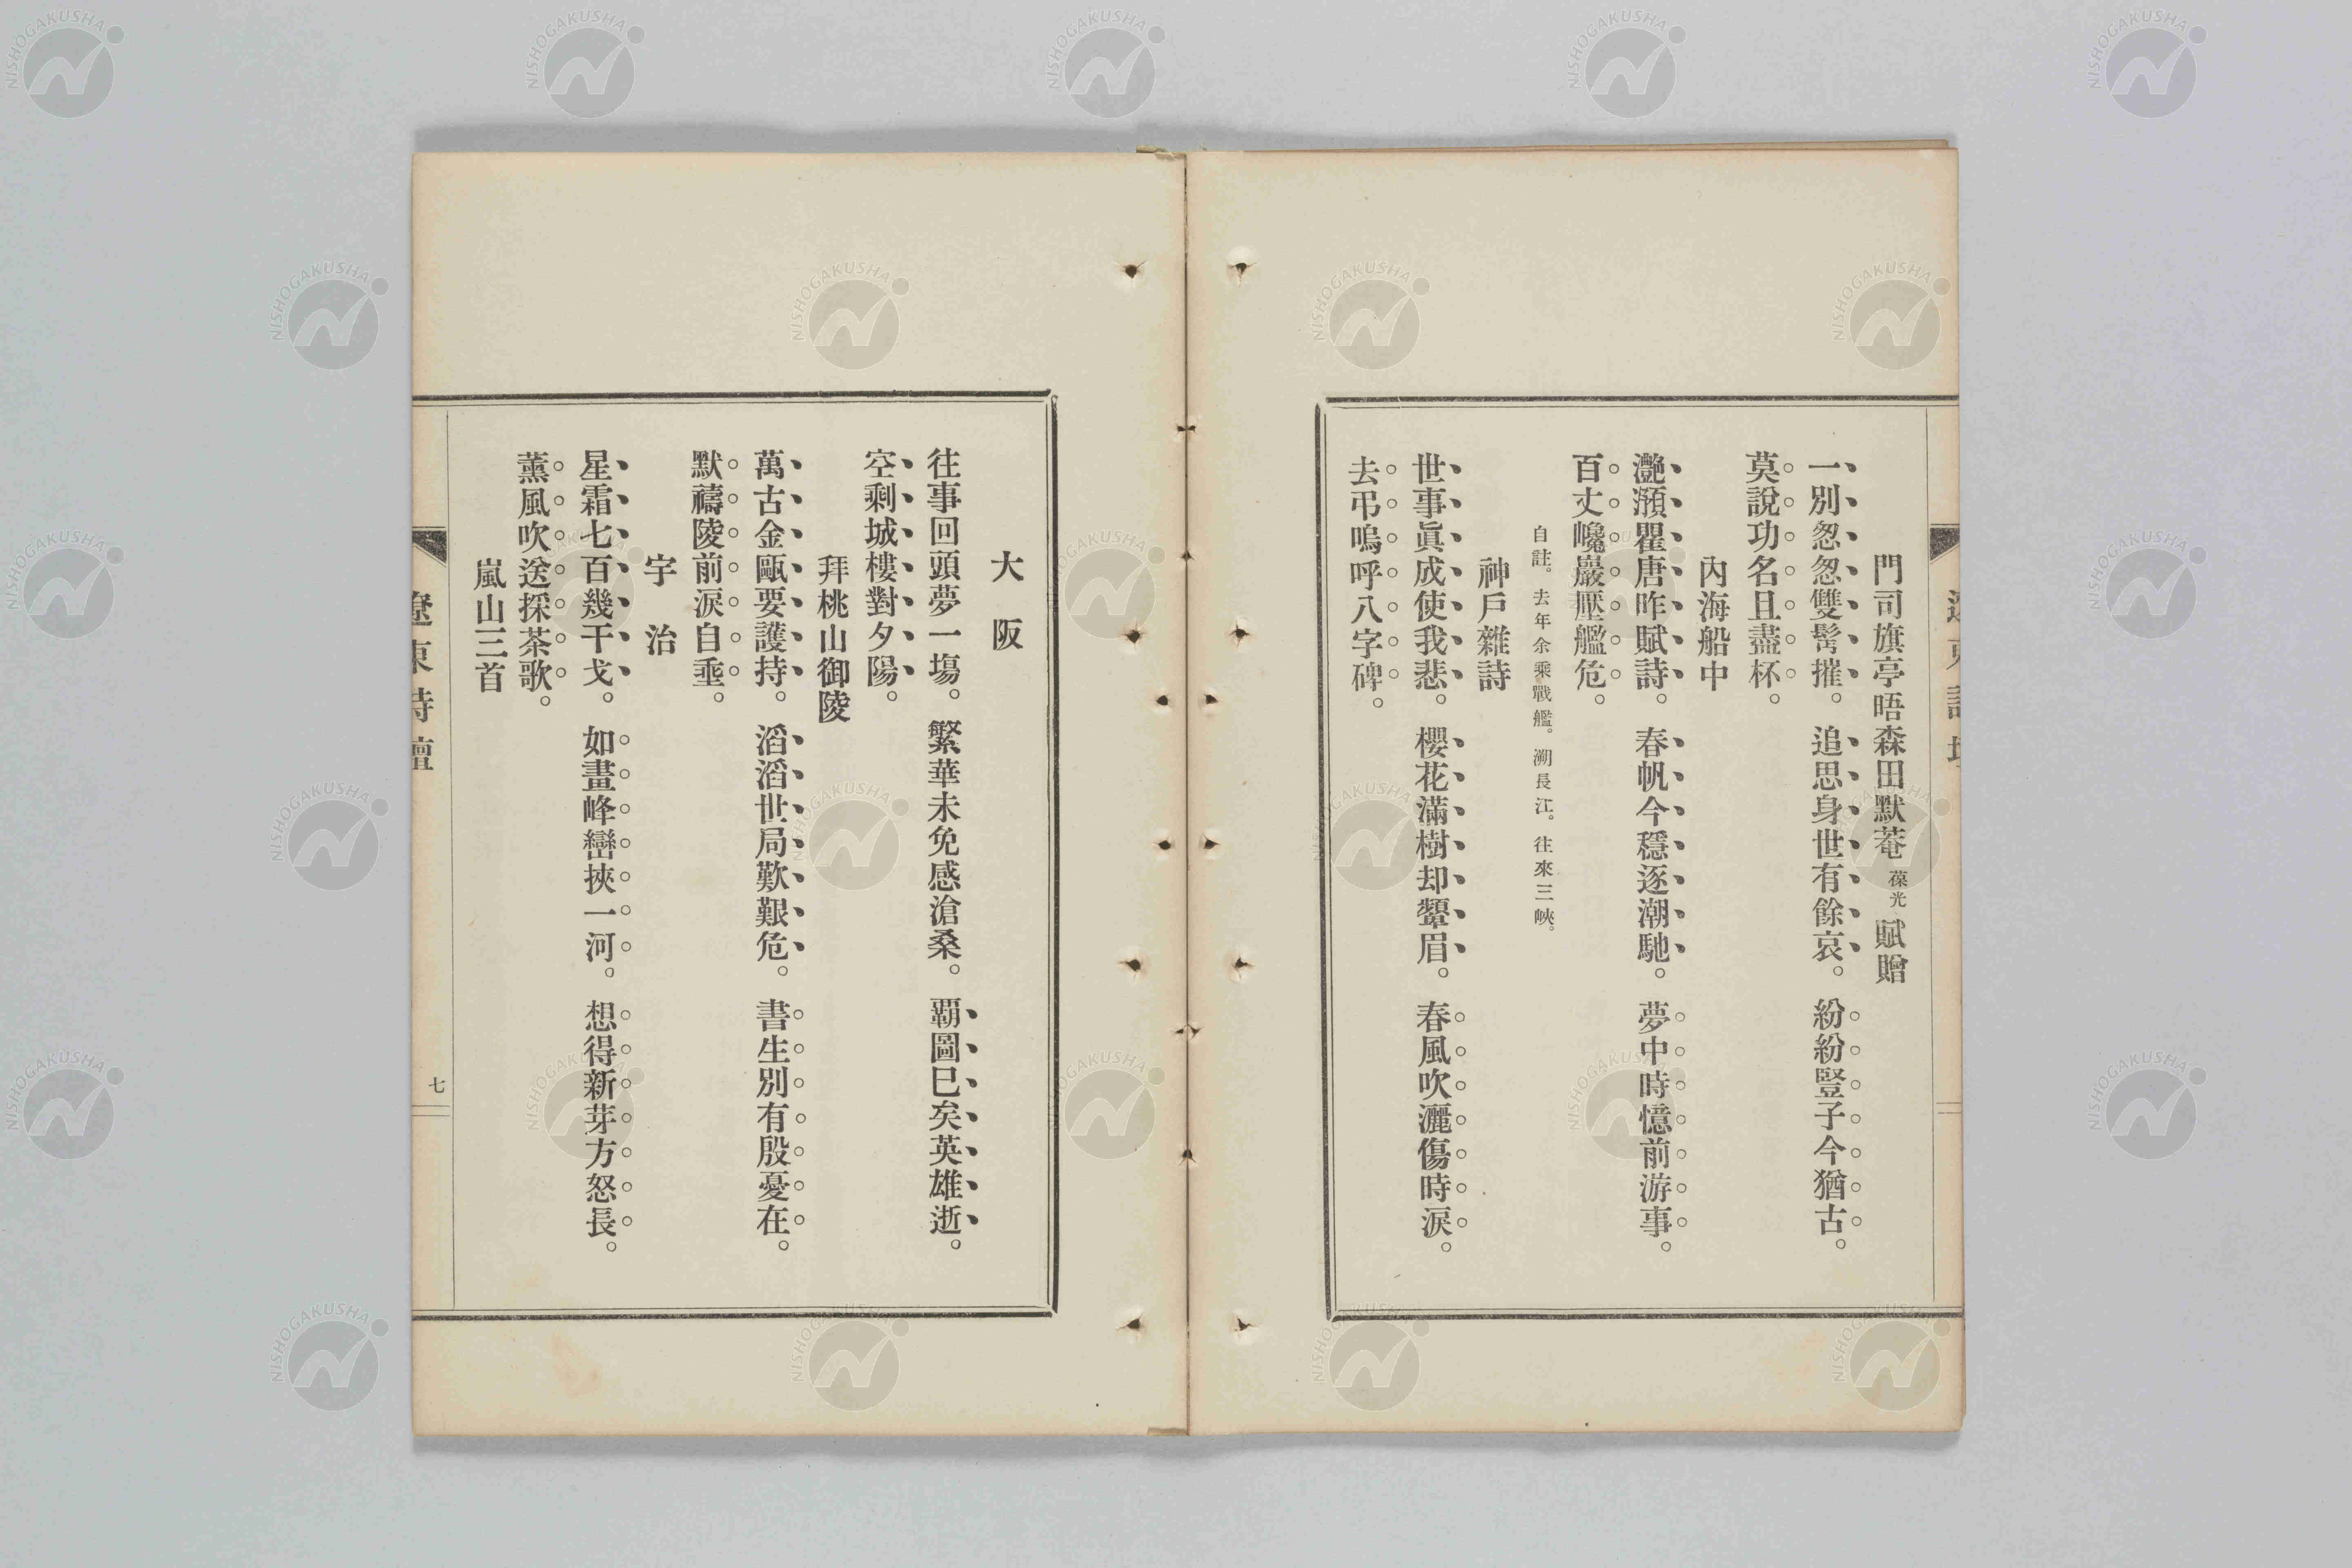 門司旗亭晤森田默菴葆光賦贈
一別怱怱雙髩摧。追思身世有餘哀。紛紛豎子今猶古。
莫說功名且盡杯。
內海船中
灩澦瞿唐昨賦詩。春帆今穩逐潮馳。夢中時憶前游事。
百丈巉巖壓艦危。
自註。去年余乘戰艦。溯長江。往來三峽。
神戶雜詩
世事眞成使我悲。櫻花滿樹却顰眉。春風吹灑傷時淚。
去弔嗚呼八字碑。
大阪
往事回頭夢一塲。繁華未免感滄桑。覇圖巳矣英雄逝。
空剩城樓對夕陽。
拜桃山御陵
萬古金甌要護持。滔滔世局歎艱危。書生別有殷憂在。
默禱陵前淚自埀。
宇治
星霜七百幾干戈。如畫峰巒挾一河。想得新芽方怒長。
薰風吹送採茶歌。
嵐山三首
遼東詩壇
七
NISHOGAKUSHA